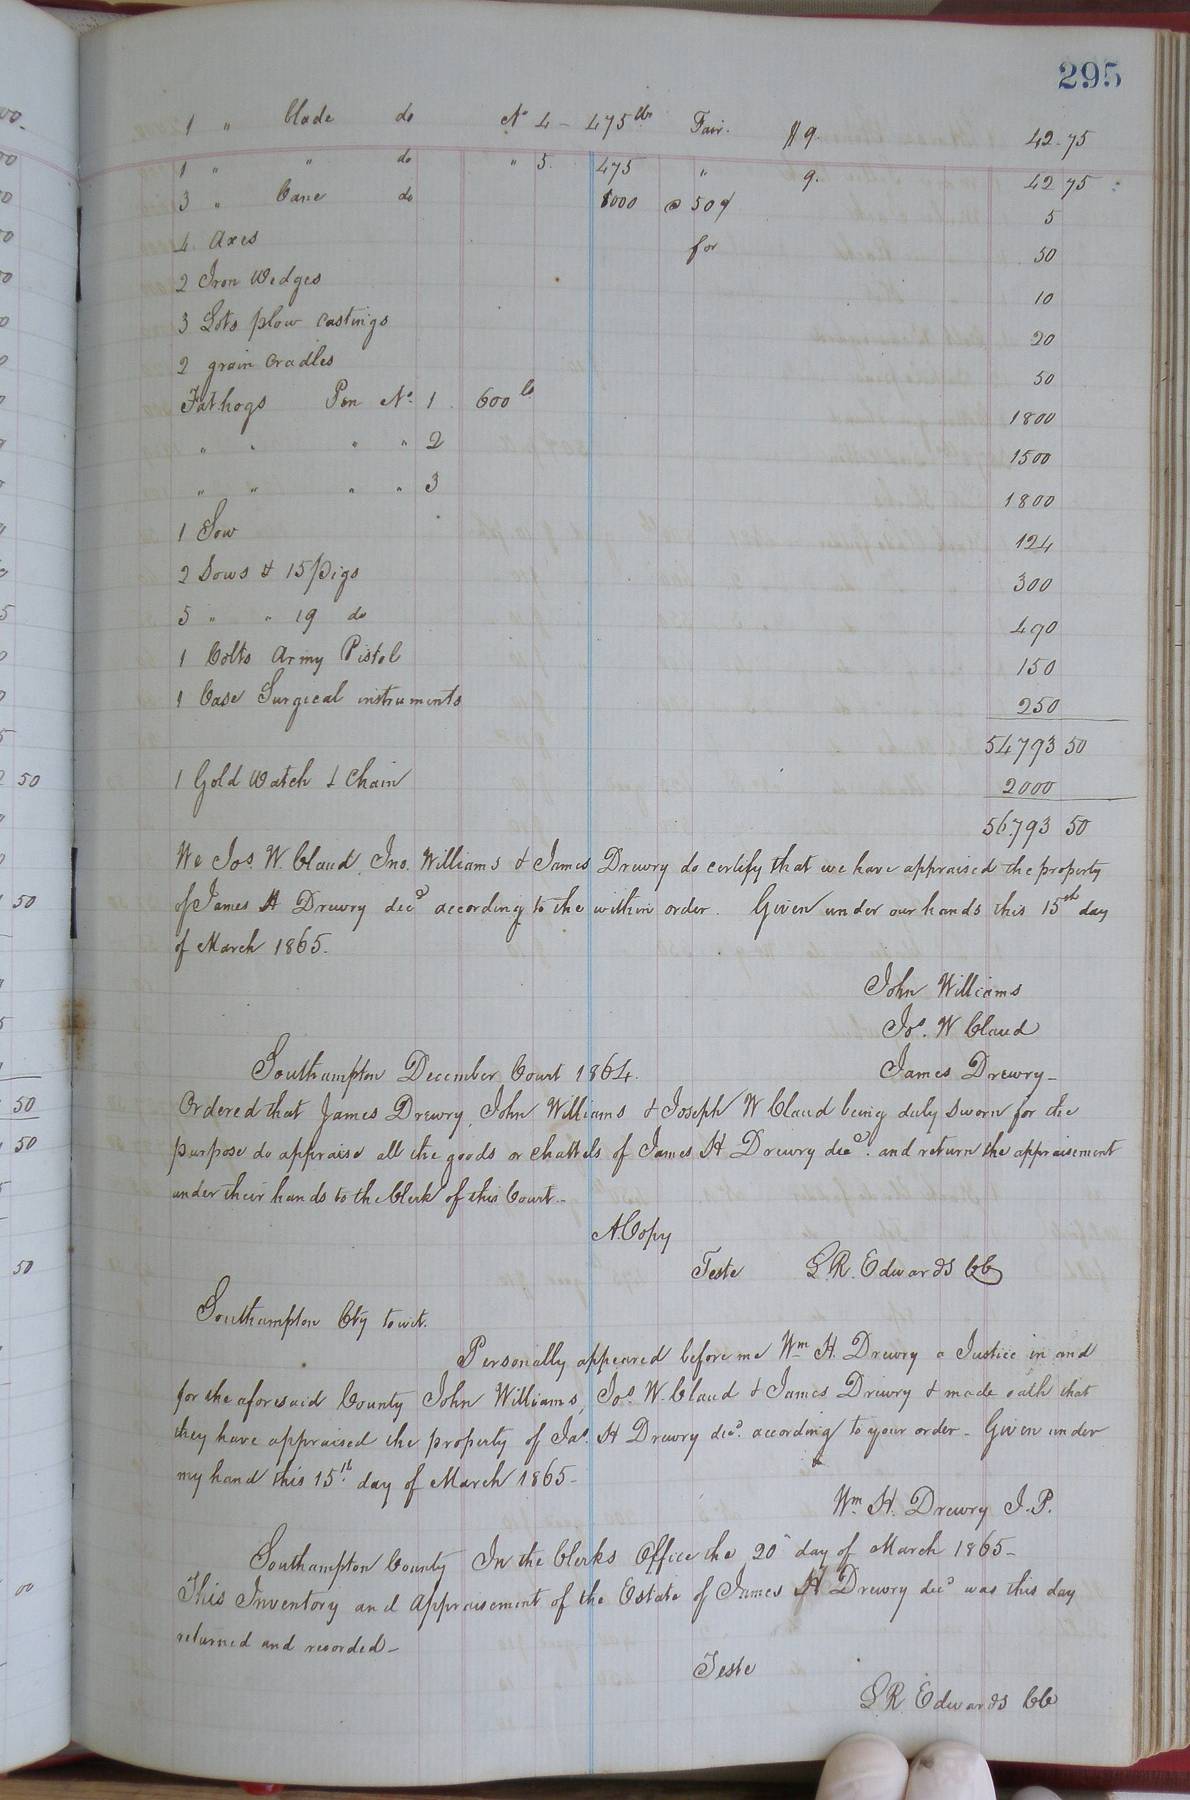 295
1 " blade do No 4 - 475 lbs Fair. $9. 42.75
1 " " do " 5. 475 " 9. 42 75
3 " Cane do 1000 @ 50¢ 5
4 Axes for 50
2 Iron Wedges 10
3 Lots plow castings 20
2 grain cradles 50
Fat hogs Pen No. 1 600 lb 1800
" " " " 2 1500
" " " " 3 1800
1 Sow 124
2 Sows & 15 pigs 300
5 " " 19 do 490
1 Colts Army Pistol 150
1 Case Surgical instruments 250
54793 50
1 Gold Watch & Chain 2000
56793 50
We Jos. W. Claud, Jno. Williams & James Drewry do certify that we have appraised the property
of James H Drewry decd according to the within order. Given under our hands this 15th day
of March 1865.
John Williams
Jos. W Claud
James Drewry -
Southampton December Court 1864.
Ordered that James Drewry, John Williams & Joseph W Claud being duly sworn for the
purpose do appraise all the goods or chattels of James H Drewry decd. and return the appraisement
under their hands to the Clerk of this Court -
A Copy
Teste L. R. Edwards CC
Southampton Cty towit.
Personally appeared before me Wm H. Drewry a Justice in and
for the aforesaid County John Williams, Jos. W. Claud & James Drewry & made oath that
they have appraised the property of Jas. H Drewry decd. according to your order - Given under
my hand this 15th day of March 1865 -
Wm. H. Drewry J.P.
Southampton County In the Clerks Office the 20" day of March 1865 -
This Inventory and Appraisement of the Estate of James H Drewry decd was this day
returned and recorded -
Teste
L R. Edwards CC
50
50
50
50
50
00